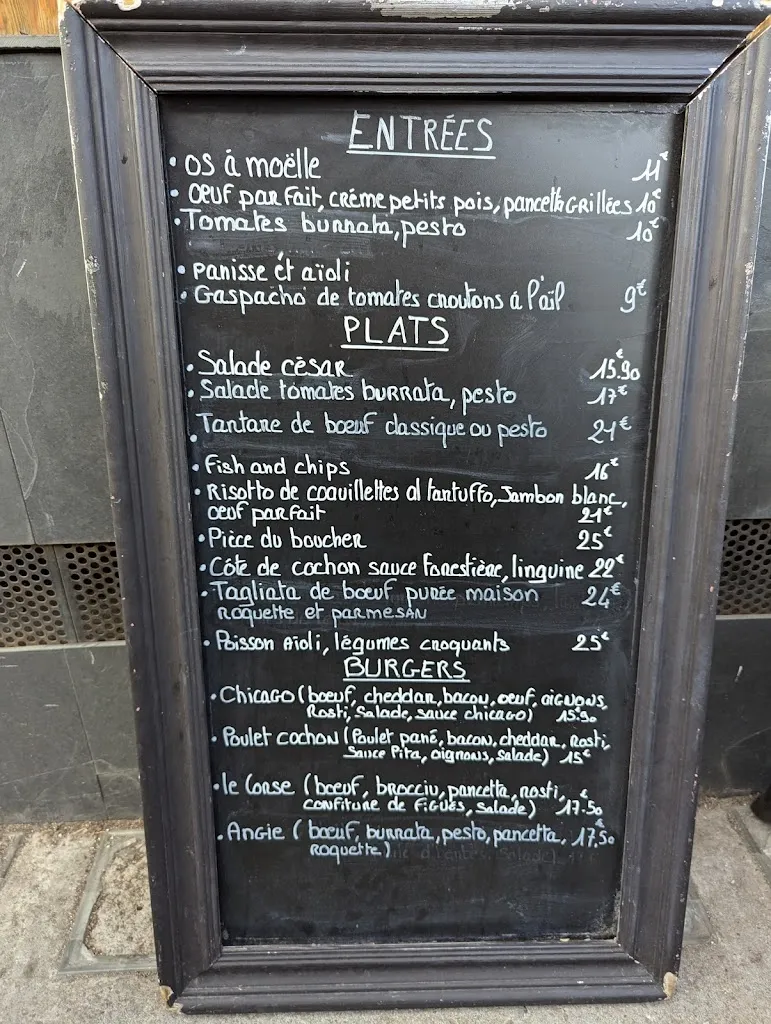 ENTRÉES
• os à moëlle 11€
• oeuf parfait, crème petits pois, pancetta Grillées 10€
• Tomates burrata, pesto 10€
• panisse et aïoli
• Gaspacho de tomates croutons à l'ail 9€
PLATS
• Salade césar 15.90€
• Salade tomates burrata, pesto 17€
• Tartare de boeuf classique ou pesto 21€
• Fish and chips 16€
• Risotto de coquillettes al tartuffo, Jambon blanc,
oeuf parfait 21€
• Pièce du boucher 25€
• Côte de cochon sauce forestière, linguine 22€
• Tagliata de boeuf purée maison 24€
roquette et parmesan
• Poisson Aïoli, légumes croquants 25€
BURGERS
• Chicago (boeuf, cheddar, bacon, oeuf, oignons,
Rosti, Salade, sauce chicago) 15.90€
• Poulet cochon (Poulet pané, bacon, cheddar, Rosti,
Sauce Pita, oignons, salade) 15€
• le Corse (boeuf, brocciu, pancetta, rosti,
confiture de Figues, Salade) 17.50€
• Angie (boeuf, burrata, pesto, pancetta, 17,50€
roquette)